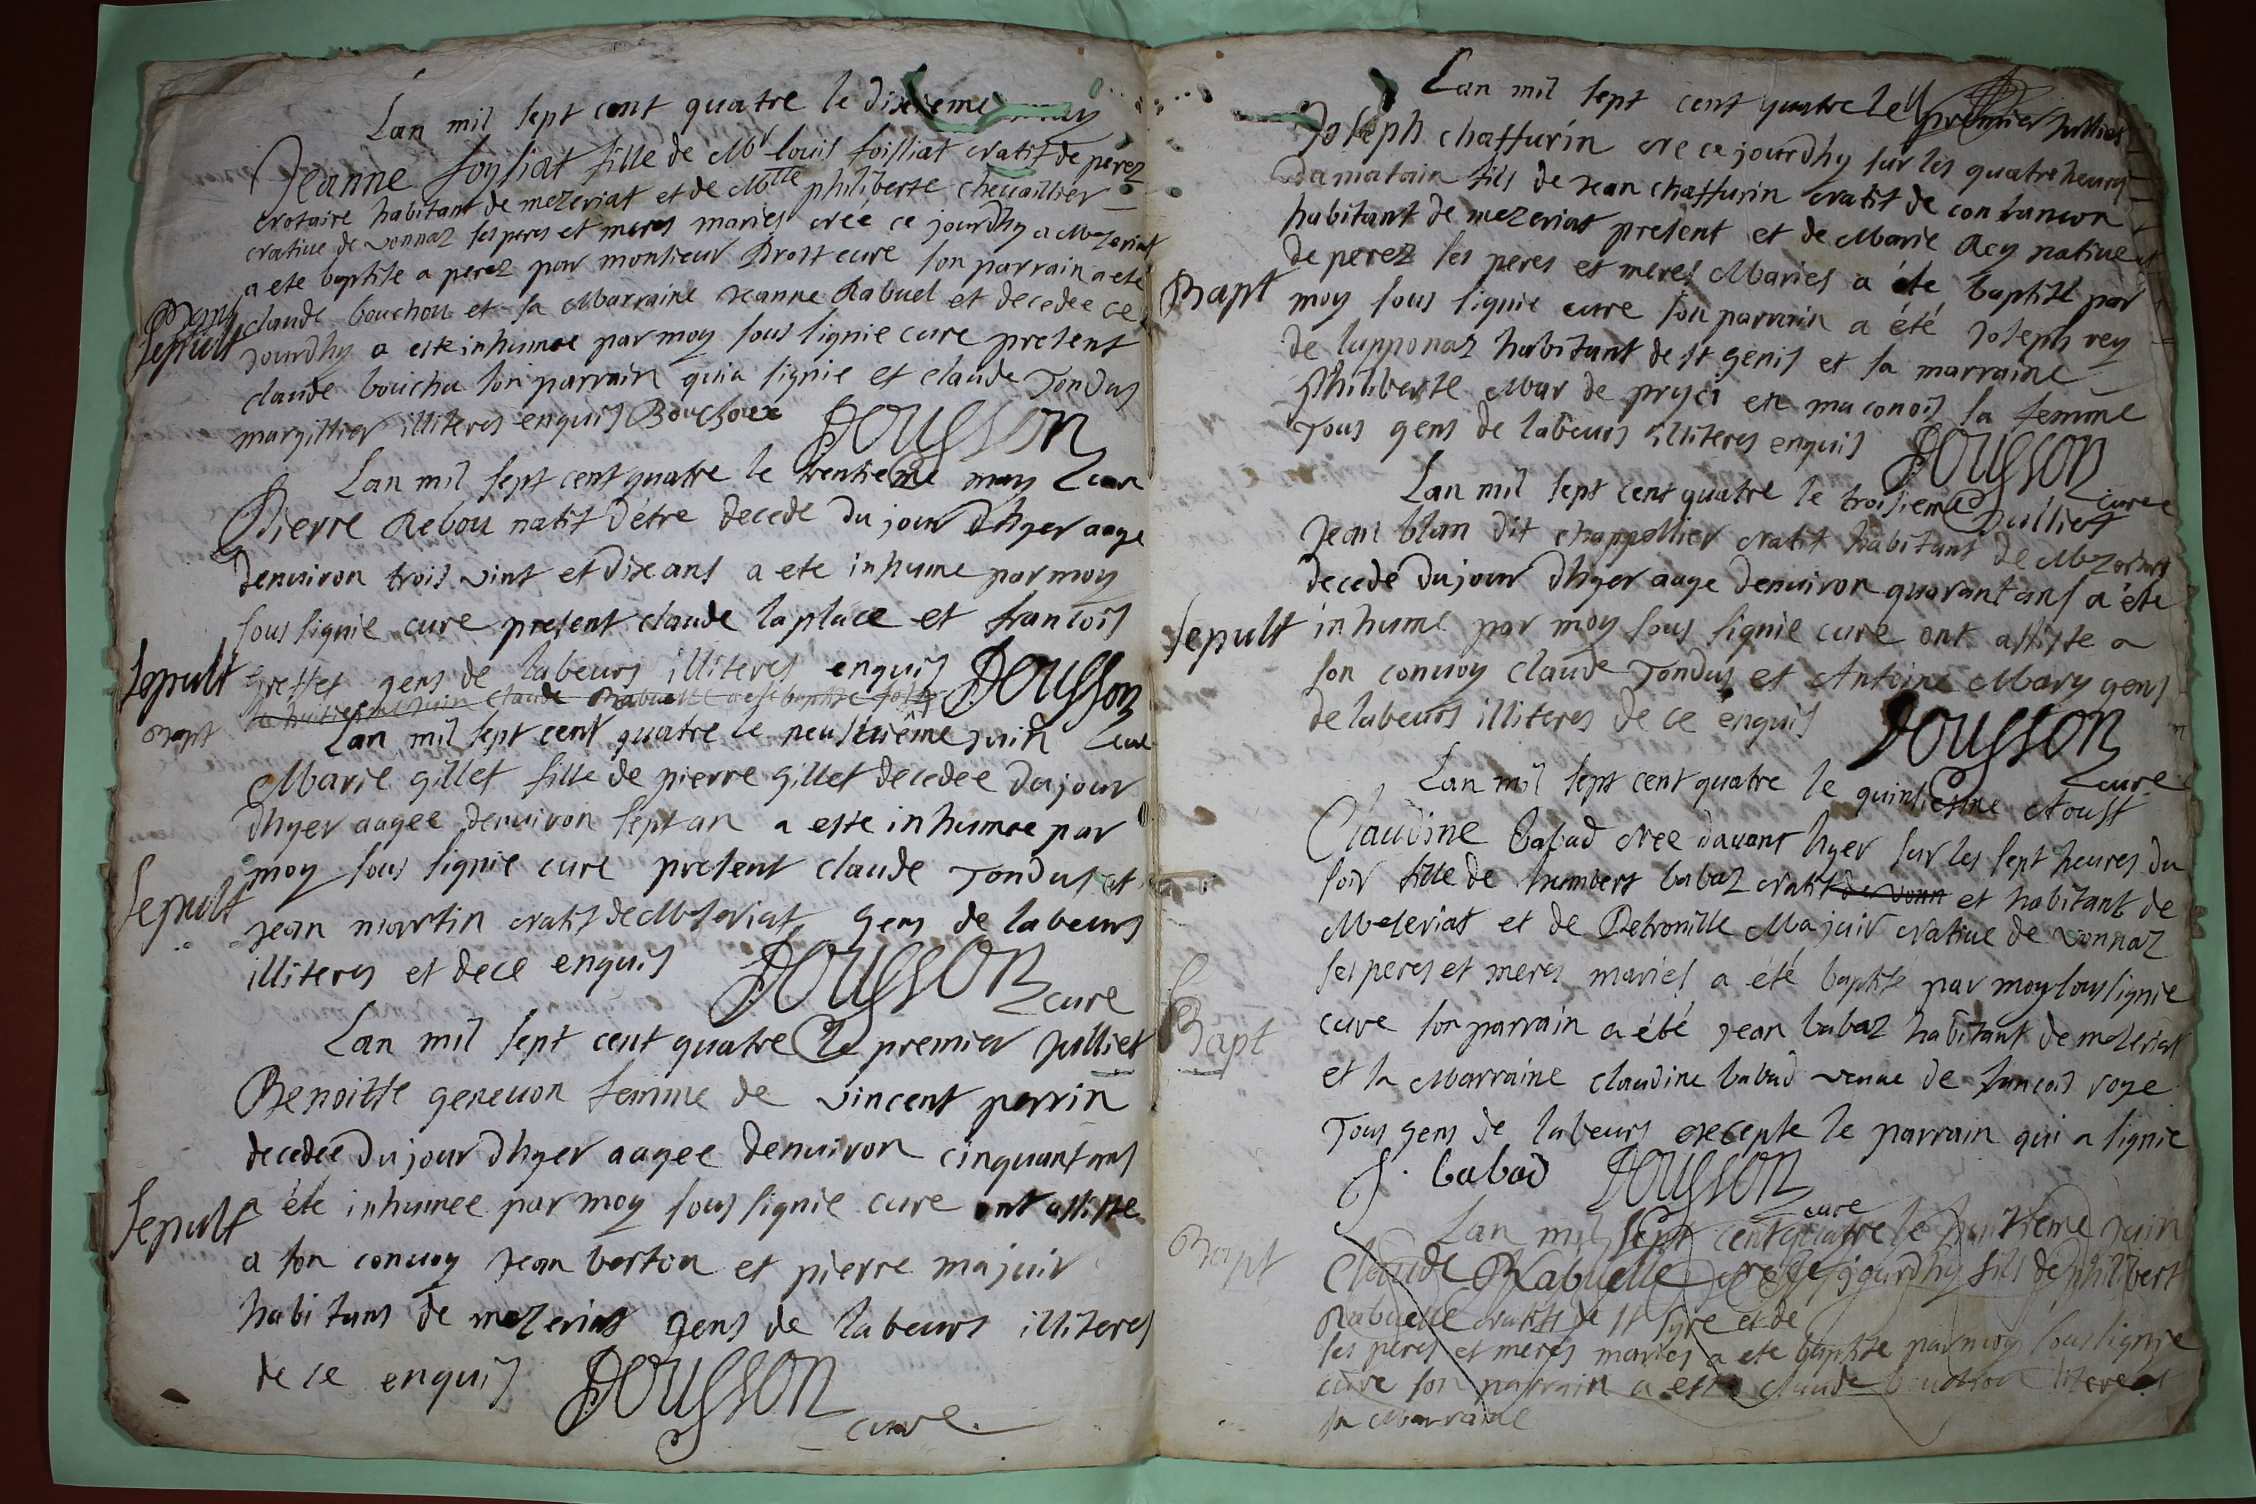 Lan mil sept cent quatre le dixieme may
Jeanne foyssiat fille de Mr louis foissiat natif de perez
notaire habitant de mezeriat et de Mlle philiberte chevaillier
native de vonnaz ses peres et meres maries née ce jourdhy a Mezeriat
a ete baptise a perez par monsieur Brost cure son parrain a ete
claude bouchou et sa Marraine jeanne Rabuel et decedee ce
Bapt
sepult
jourdhy a este inhumee par moy sous signie cure present
claude bouchu son parrain qui a signie et claude Tondus
margillier illiteres enquis Bouchoux DOUSSON
cure
Lan mil sept cent quatre le trentieme may
Pierre Rebou natif d'étre decede du jour dhyer aage
denuiron trois vint et dix ans a ete inhume par moy
sous signie cure present claude laplace et francois
sepult
greffet gens de labeurs illiteres enquis DOUSSON
cure
Bapt
le huitieme juin claude Rabuelle
Lan mil sept cent quatre le neufuiême juin
Marie gillet fille de pierre gillet decedee du jour
dhyer aagee denuiron sept an a este inhumee par
moy sous signie cure present claude Tondus et
sepult
jean martin natif de Mezeriat gens de labeurs
illiteres et dece enquis DOUSSON
cure
Lan mil sept cent quatre Le premier Julliet
Benoitte geneuon femme de vincent perrin
decedée du jour dhyer aagee denuiron cinquant ans
sepult
a éte inhumee par moy sous signie cure ont assiste
a son convoy jean berton et pierre majuir
habitans de mezeriat gens de labeurs illiteres
de ce enquis DOUSSON
cure
Lan mil sept cent quatre le premier Julliet
Joseph chaffurin ne ce jourdhy sur les quatre heures
da matain fils de jean chaffurin natif de confrancon
habitant de mezeriat present et de Marie Rey native
de perez ses peres et meres Maries a éte baptisé par
Bapt
moy sous signie cure son parrain a été Joseph rey
de lupponaz habitant de st genis et sa marraine
Philiberte Mar de pryci en maconois sa femme
Tous gens de labeurs illiteres enquis DOUSSON
cure
Lan mil sept cent quatre le troisieme Julliet
Jean blan dit chappellier natif habitant de Mezeriat
decede du jour dhyer aage denuiron quarant ans a été
sepult
inhumé par moy sous signie cure ont assiste a
son convoy claude Tondus et Antoine Mary gens
de labeurs illiteres de ce enquis DOUSSON
cure
Lan mil sept cent quatre le quinsiesme Aoust
Claudine babad nee dauant hyer sur les sept heures du
soir fille de humbert babaz natif de vonn et habitant de
Mezeriat et de Petronille Majuir native de vonnaz
ses peres et meres maries a été baptise par moy sous signie
Bapt
cure son parrain a été jean babaz habitant de mezeriat
et sa Marraine claudine babad veuue de francois roye
Tous gens de labeurs excepte le parrain qui a signie
J. babad DOUSSON
cure
Lan mil sept cent quatre le huitieme juin
Bapt
Claude Rabuelle ne ce jourdhy fils de philibert
Rabuelle natif de st syre et de
ses peres et meres maries a ete baptise par moy sous signie
cure son parrain a este claude bouchou et
sa Marraine